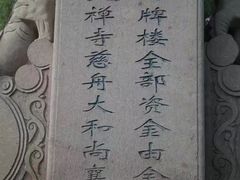 牌楼全部资金由金
禅寺慈舟大和尚